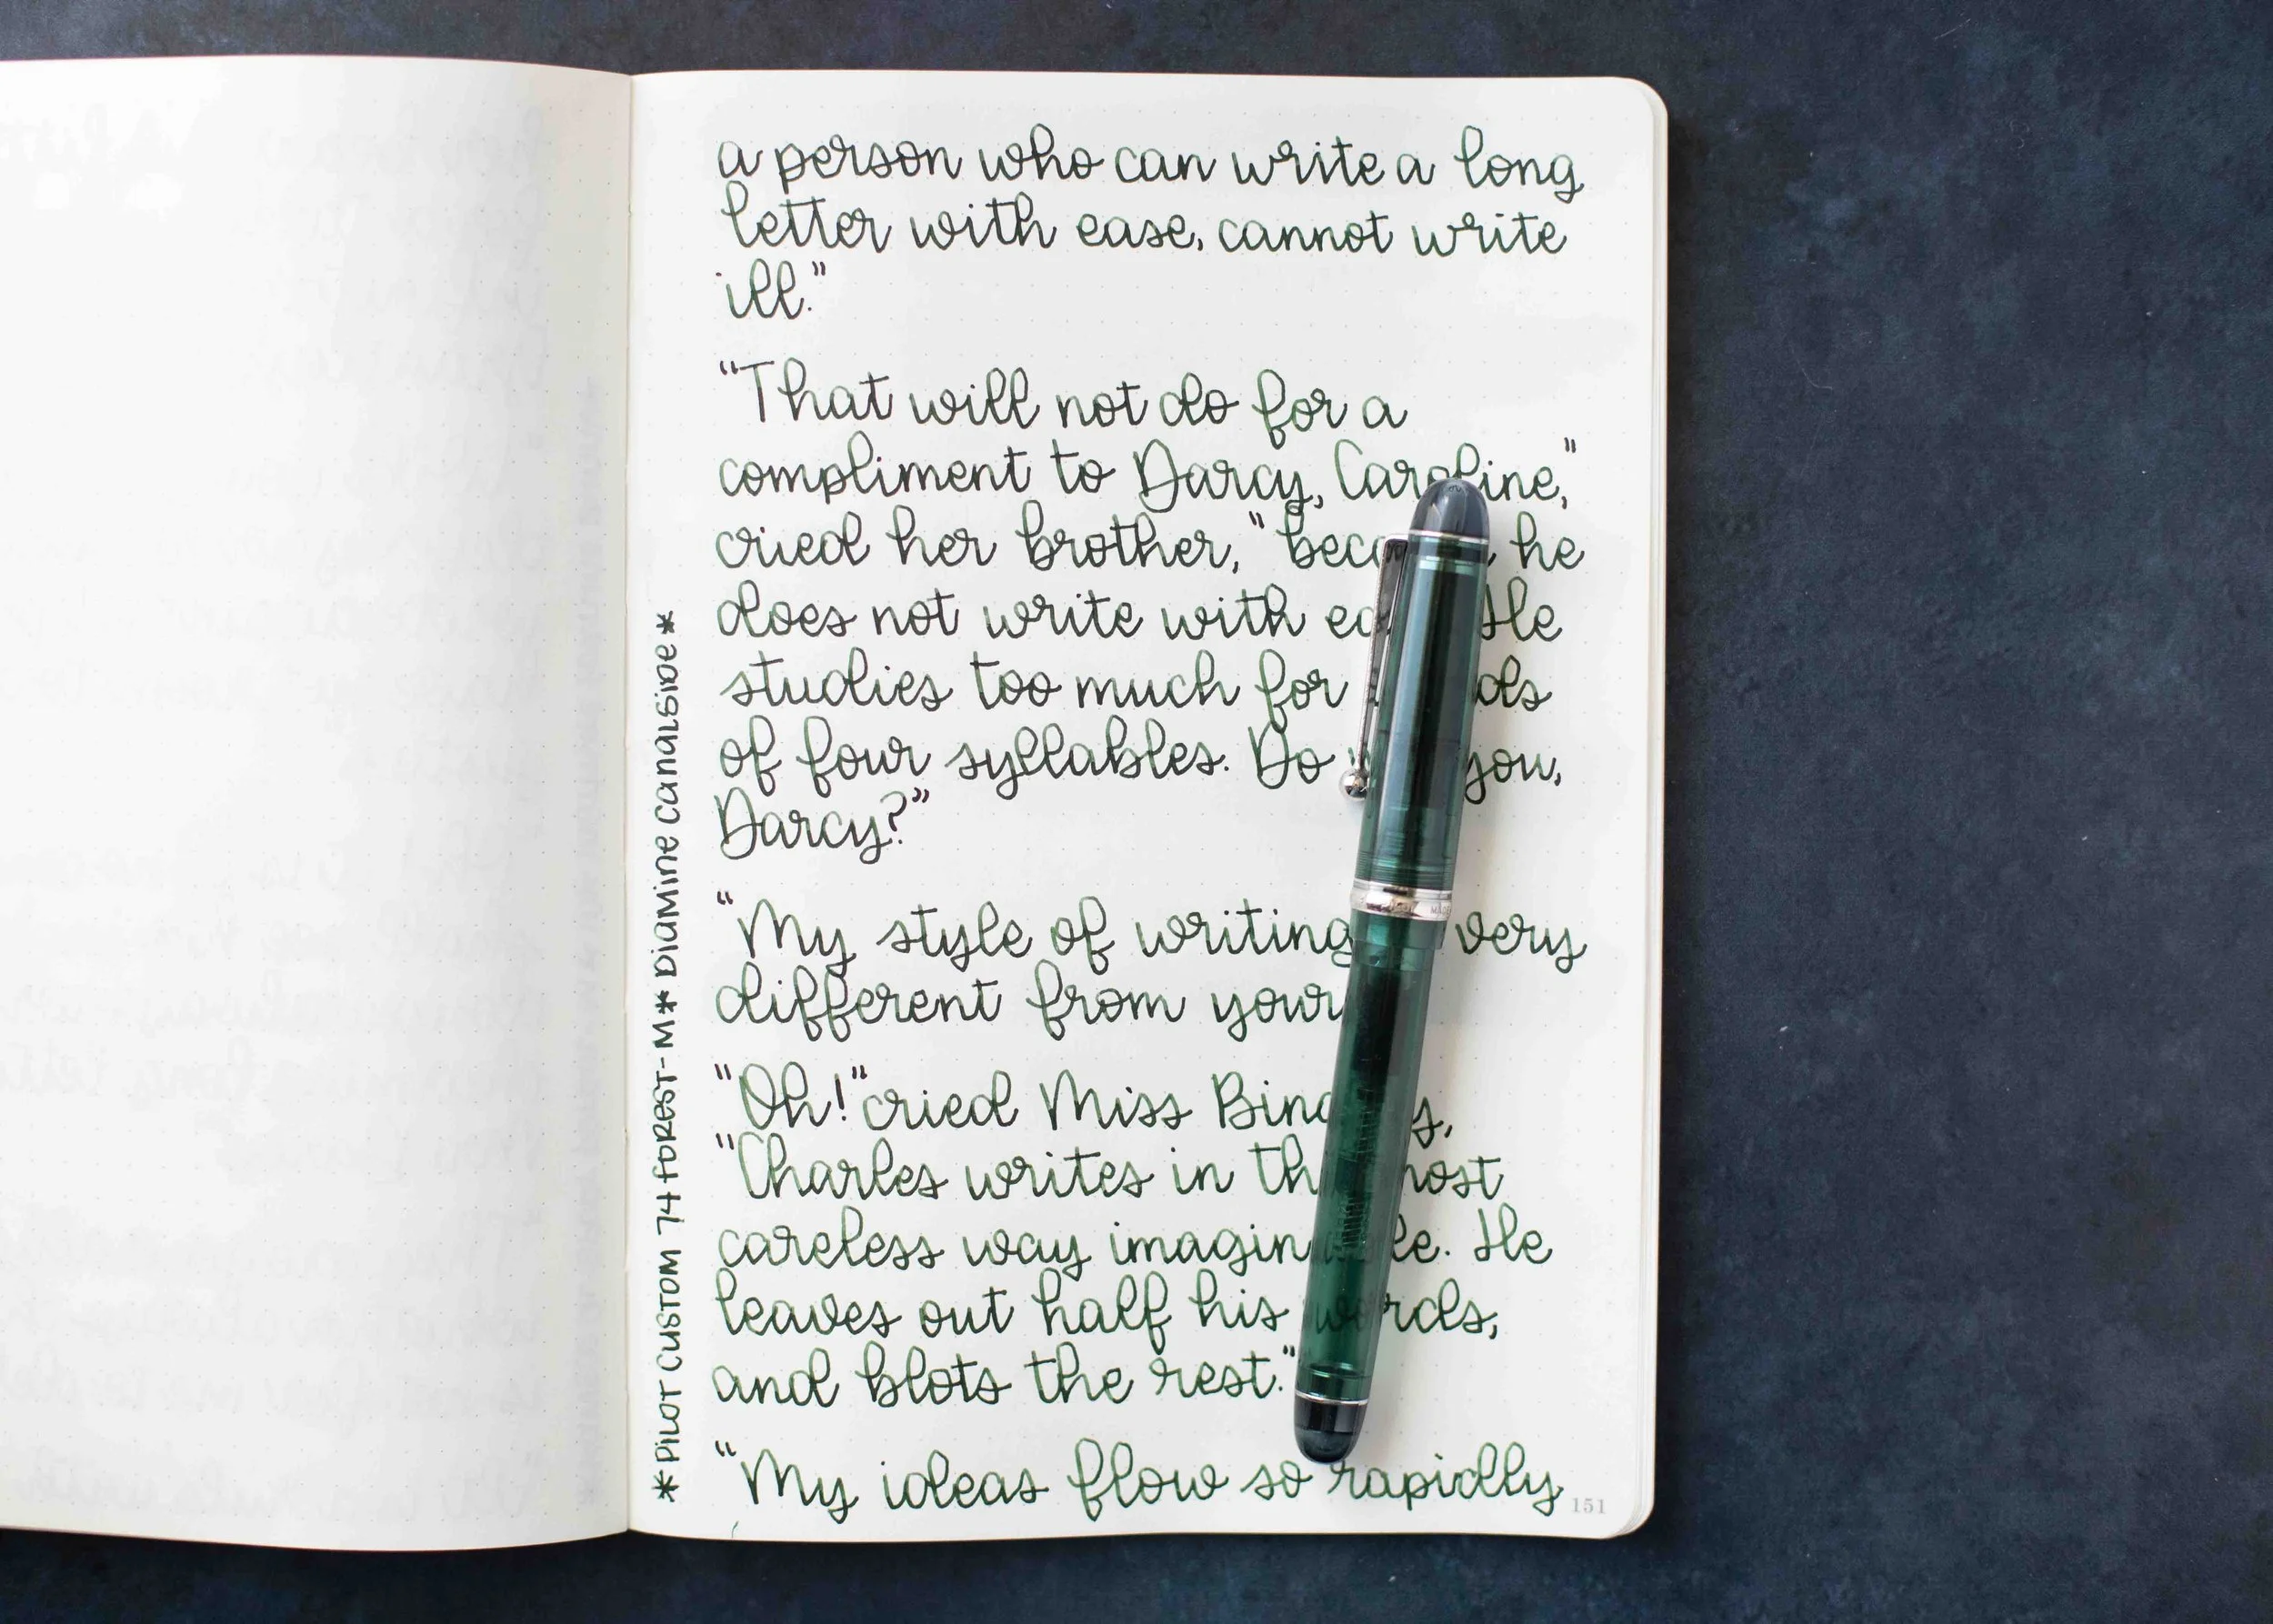 a person who can write a long
letter with ease, cannot write
ill."
"That will not do for a
compliment to Darcy, Caroline,"
cried her brother, "because he
does not write with He
studies too much for
of four syllables. Do you,
Darcy?"
"My style of writing very
different from
"Oh!" cried Miss
"Charles writes in
careless way imaginable. He
leaves out half his words,
and blots the rest."
"My ideas flow so rapidly
151
*PILOT CUSTOM 74 FOREST-M* DIAMINE CANALSIDE*